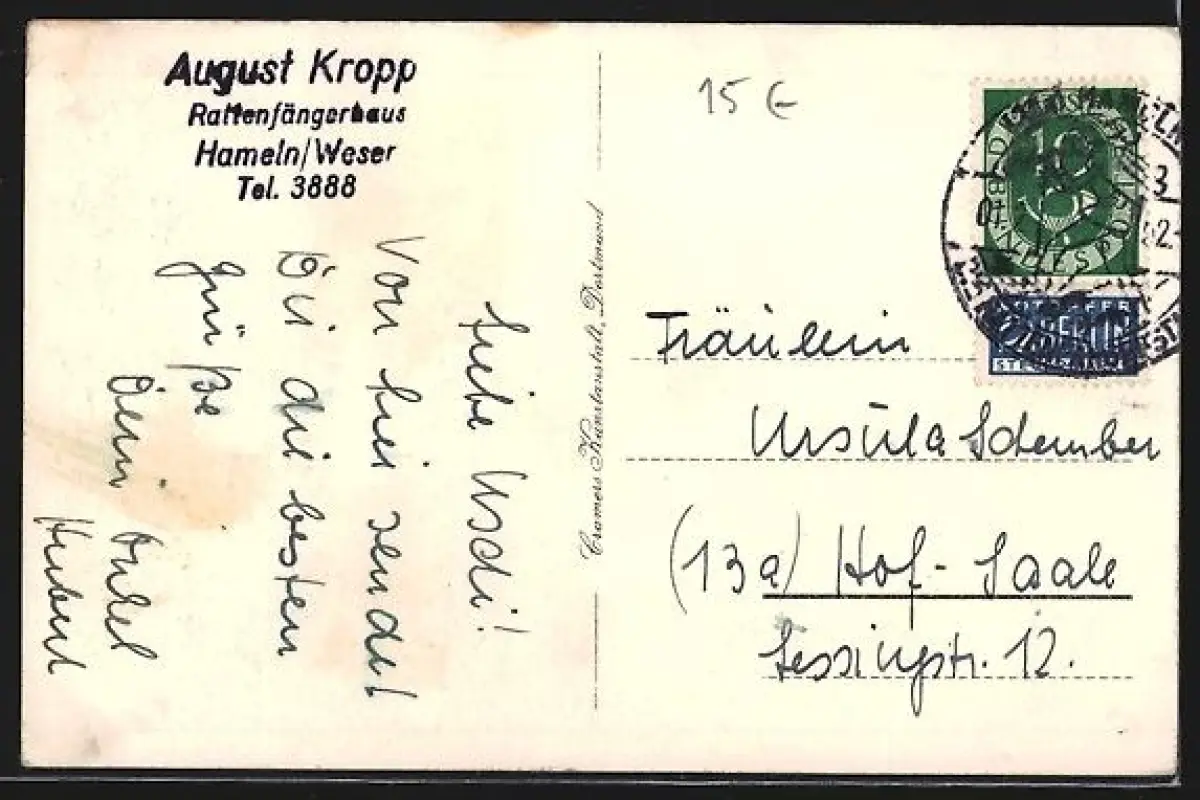 August Kropp
Rattenfängerhaus
Hameln/Weser
Tel. 3888
Liebe Uschi!
Von hier sendet
Dir die besten
Grüße
Dein Onkel
Hubert
Cramers Kunstanstalt, Dortmund
15 €
DEUTSCHE BUNDESPOST
10
NOTOPFER
2 BERLIN
STEUERMARKE
Fräulein
Ursula Schember
(13a) Hof-Saale
Lessingstr. 12.